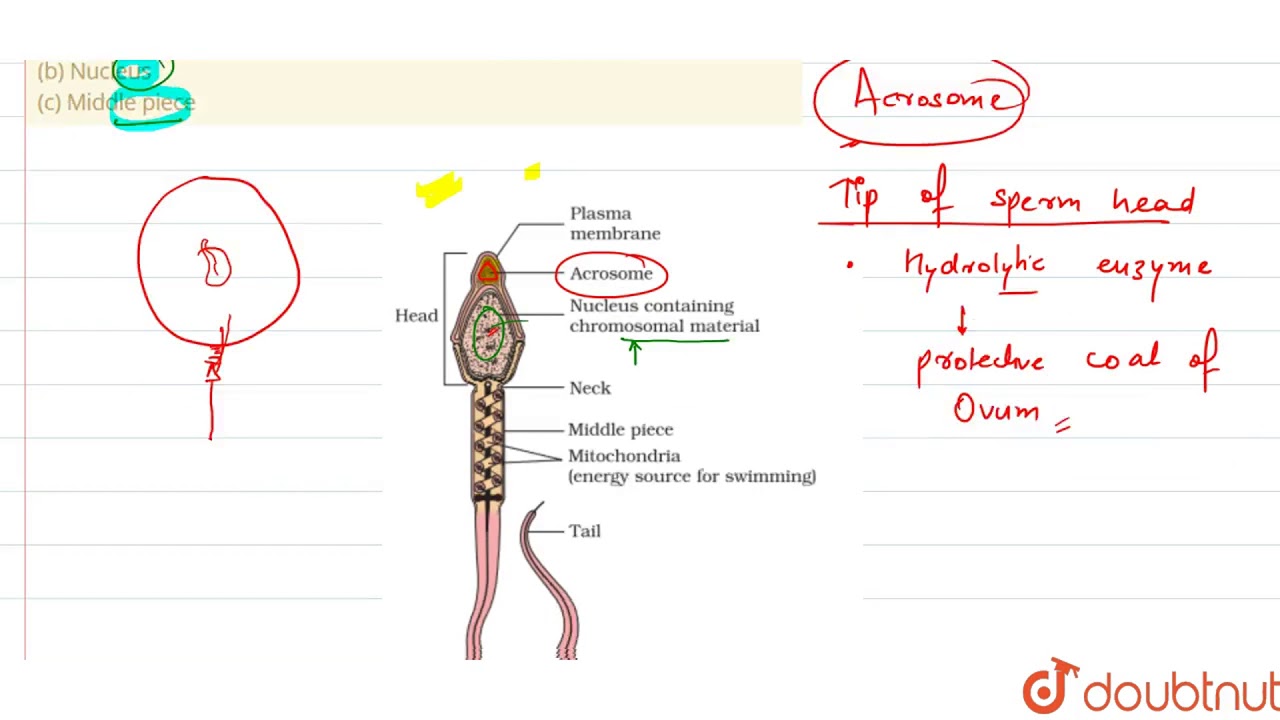 (b) Nucleus
(c) Middle piece
Acrosome
Tip of sperm head
• Hydrolytic enzyme
↓
protective coat of
Ovum
Plasma
membrane
Acrosome
Nucleus containing
chromosomal material
Head
Neck
Middle piece
Mitochondria
(energy source for swimming)
Tail
doubtnut